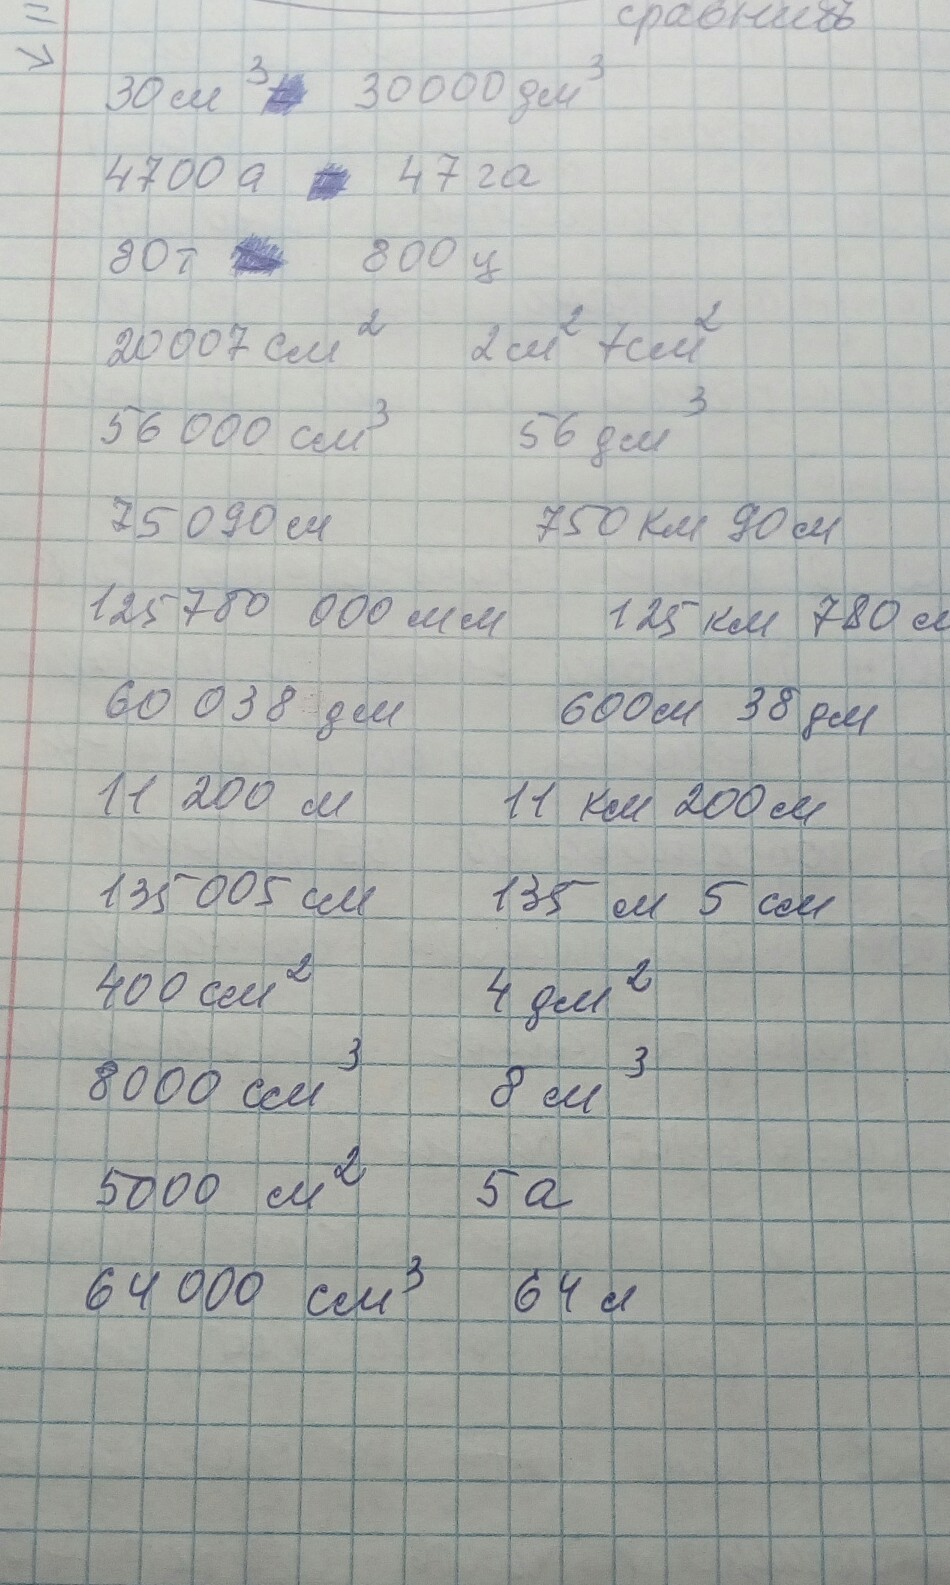 сравнить
30 м³ 30000 дм³
4700 а 47 га
80 т 800 ц
20007 см² 2 м² 7 см²
56 000 см³ 56 дм³
75 090 м 750 км 90 м
125 780 000 мм 125 км 780 м
60 038 дм 600 м 38 дм
11 200 м 11 км 200 м
135 005 см 135 м 5 см
400 см² 4 дм²
8000 см³ 8 м³
5000 м² 5 а
64 000 см³ 64 л